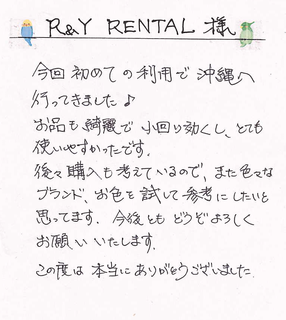 R&Y RENTAL 様
今回初めての利用で沖縄へ
行ってきました♪
お品も綺麗で小回り効くし、とても
使いやすかったです。
後々購入も考えているので、また色々な
ブランド、お色を試して参考にしたいと
思ってます。今後ともどうぞよろしく
お願いいたします。
この度は本当にありがとうございました